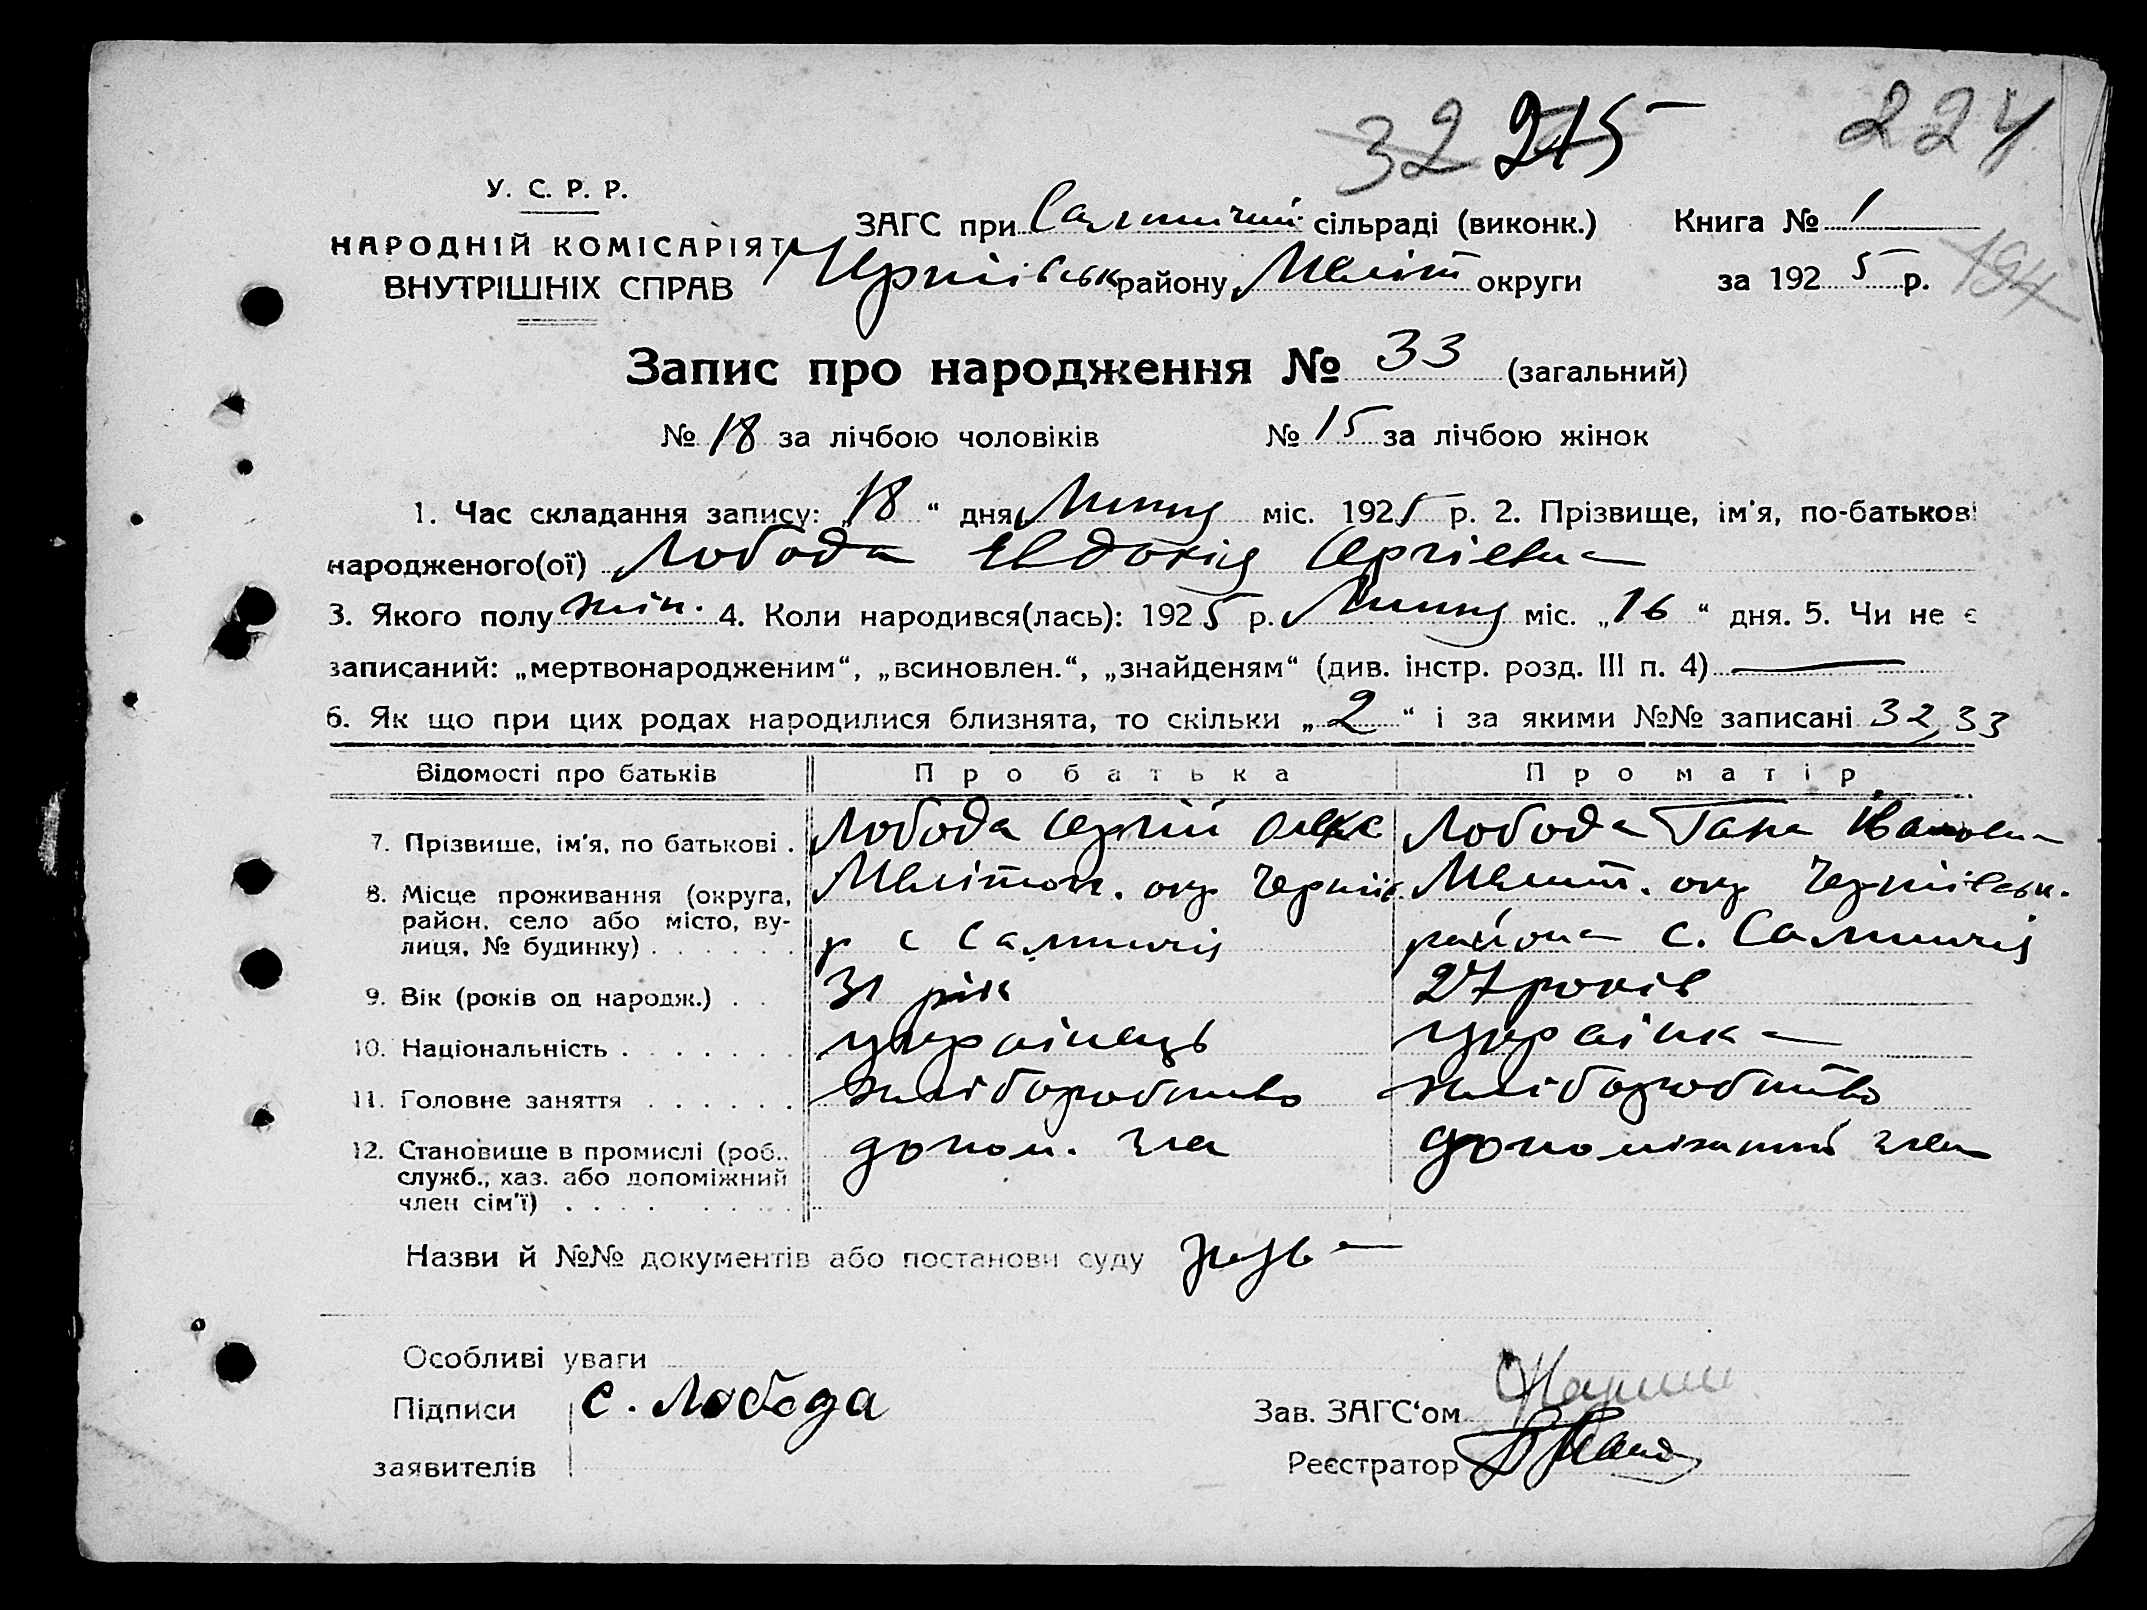 32 215 224
У. С. Р. Р.
НАРОДНІЙ КОМІСАРІЯТ
ВНУТРІШНІХ СПРАВ
ЗАГС при сільраді (виконк.) Книга № 1
району Меліт округи за 1925 р. 194
Запис про народження № 33 (загальний)
№ 18 за лічбою чоловіків № 15 за лічбою жінок
1. Час складання запису: „18“ дня Липня міс. 1925 р. 2. Прізвище, ім'я, по-батькові
народженого(ої) Лобода Евдокія Сергіевна
3. Якого полу жін. 4. Коли народився(лась): 1925 р. Липня міс. „16“ дня. 5. Чи не є
записаний: „мертвонародженим“, „всиновлен.“, „знайденям“ (див. інстр. розд. III п. 4)
6. Як що при цих родах народилися близнята, то скільки „2“ і за якими №№ записані 32, 33
Відомості про батьків Про батька Про матір
7. Прізвише, ім'я, по батькові . Лобода Сергій Олекс Лобода Гана Івановна
8. Місце проживання (округа, Мелітоп. окр Черніів Мелит. окр Чернівськ.
район, село або місто, ву-
лиця, № будинку) . . . . . . р с Салтичія района с. Салтичія
9. Вік (років од народж.) . . 31 рік 27 років
10. Національність . . . . . . . українець украінка
11. Головне заняття . . . . . . хліборобство хліборобство
12. Становище в промислі (роб., допом. чле допоміжний член
служб., хаз. або допоміжний
член сім'ї) . . . . . . . .
Назви й №№ документів або постанови суду
Особливі уваги
Підписи С. Лобода Зав. ЗАГС‘ом
заявителів Реєстратор